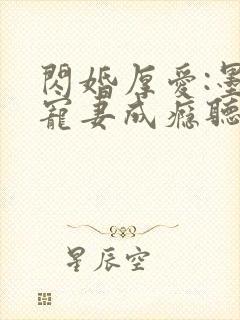 閃婚厚愛:墨
寵妻成癮聽
星辰空